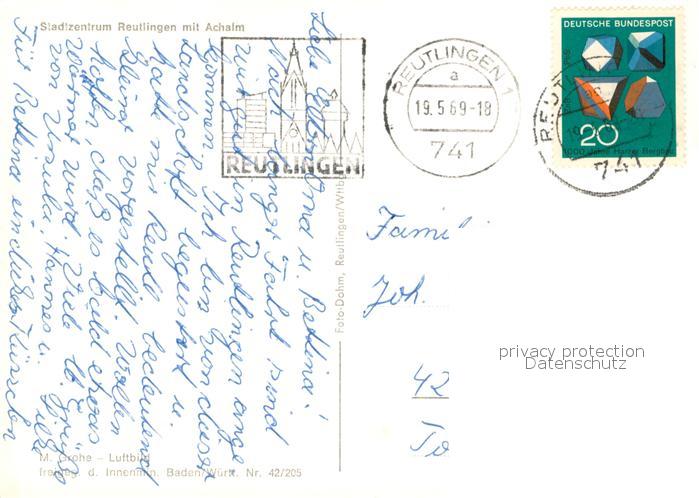 Stadtzentrum Reutlingen mit Achalm
Liebe Eltern, Oma u. Bettina!
Nach langer Fahrt sind
wir gut in Reutlingen ange
kommen. Ich bin von dieser
Landschaft begeistert u.
hatte mir Reutl. bedeutend
kleiner vorgestellt. Wollen
hoffen daß es bald etwas
wärmer wird. Viele lb. Grüße
von Ursula, Hannes u.
Für Bettina ein dickes Küsschen
M. Grohe – Luftbild
freigeg. d. Innenmin. Baden/Württ. Nr. 42/205
Foto-Dohm, Reutlingen/Württ
REUTLINGEN
REUTLINGEN 1
a
19.5.69-18
741
DEUTSCHE BUNDESPOST
20
1000 Jahre Harzer Bergbau
741
Famil
Joh.
42
privacy protection
Datenschutz